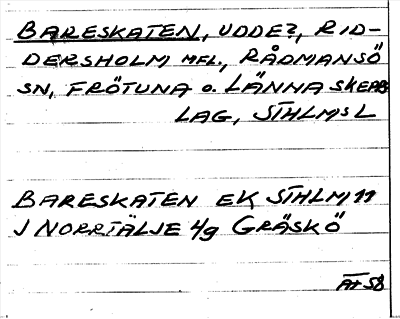 BARESKATEN, UDDE?, RID-
DERSHOLM MFL., RÅDMANSÖ
SN, FRÖTUNA o. LÄNNA SKEPPS
LAG, STHLMS L
BARESKATEN EK STHLM 11
J NORRTÄLJE 4g GRÄSKÖ
58